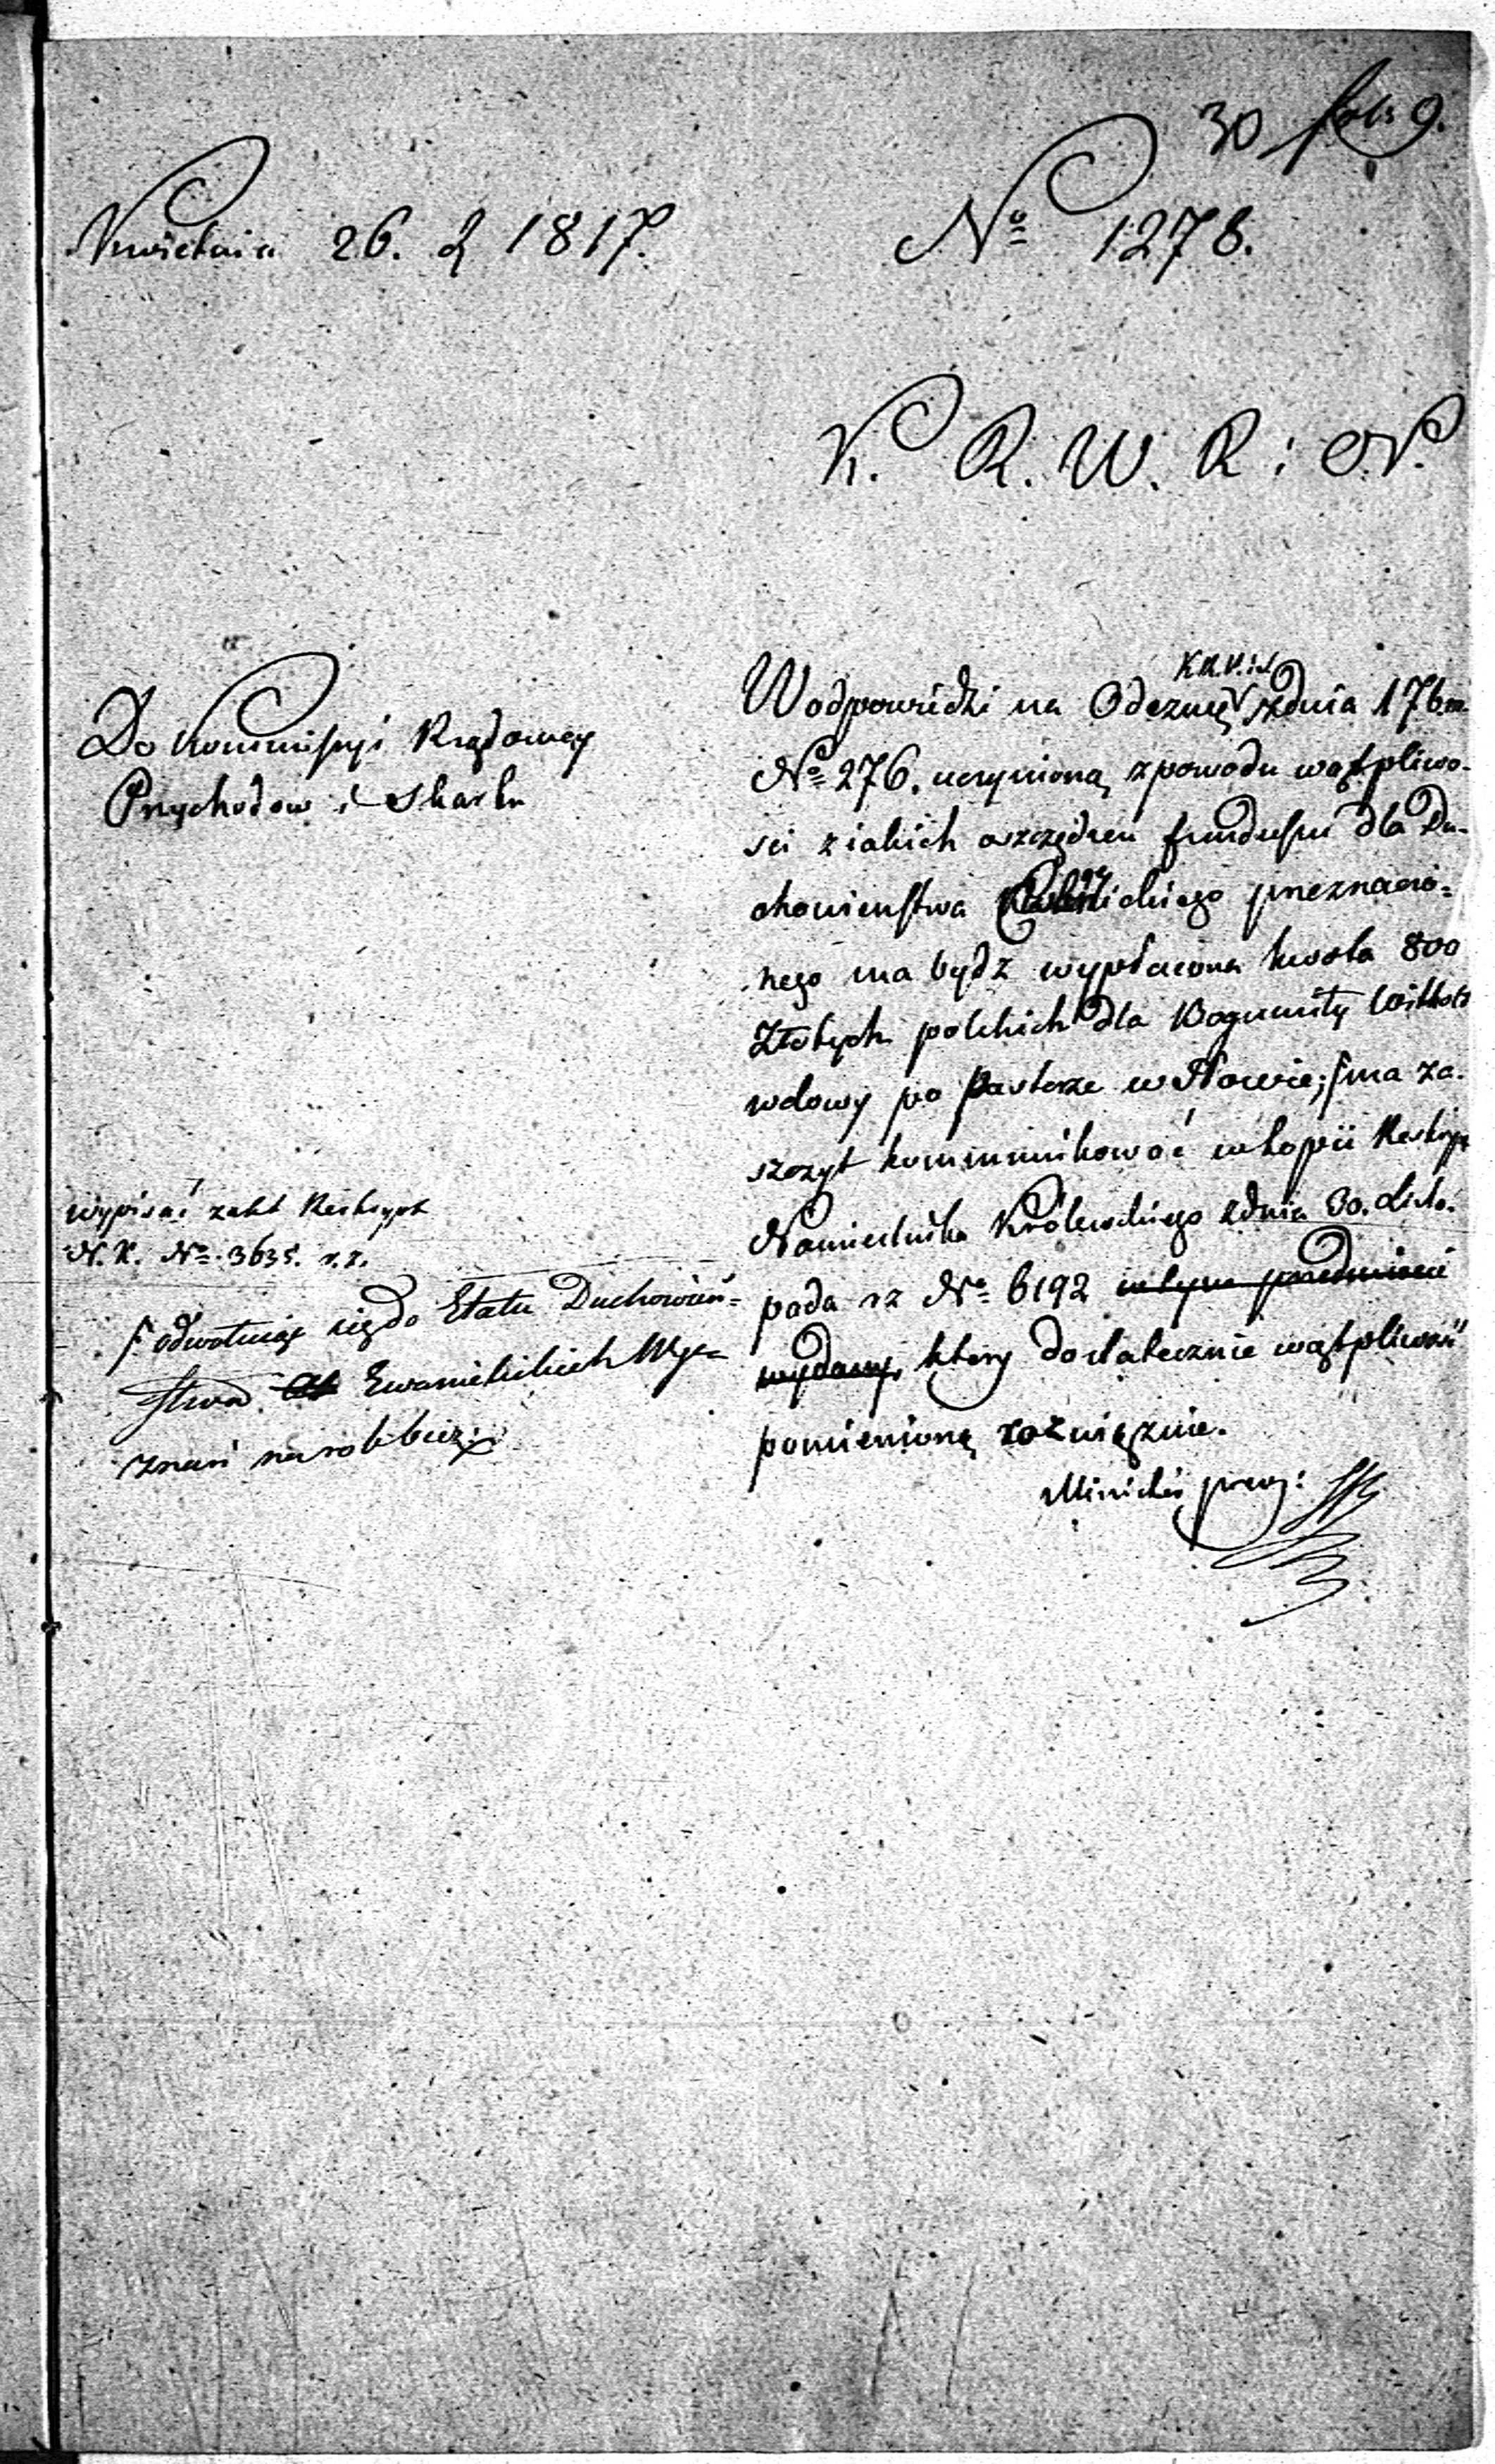 30 folio 9.
Kwietnia 26. d 1817.
No 1278.
K. R. W. R: i O. P.
Do Kommissyi Rządowey
Przychodow i Skarbu
K.R.P.i S
W odpowiedzi na Odezwę z dnia 17 b.m.
No 276. uczynioną z powodu wątpliwo-
sci z iakich oszczędzeń funduszu dla Du-
chowienstwa przeznaczo-
nego ma bydz wypłacona kwota 800
Złotych polskich dla Bogumiły
wdowy po Pastorze w Iłowie; ma za-
szczyt kommunikować w kopii Reskrypt
Namiestnika Królewskiego z dnia 30. Listo-
pada rz No 6192 w tym przedmiocie
wydany, ktory dostatecznie wątpliwość
pomienioną rozwiąznie.
Minister prezy:
Wypisać z akt Reskrypt
N. K. No 3635. r.z.
odwołuiąc się do Etatu Duchowień-
stwa Ewanielickich Wy-
znań na rok bież: